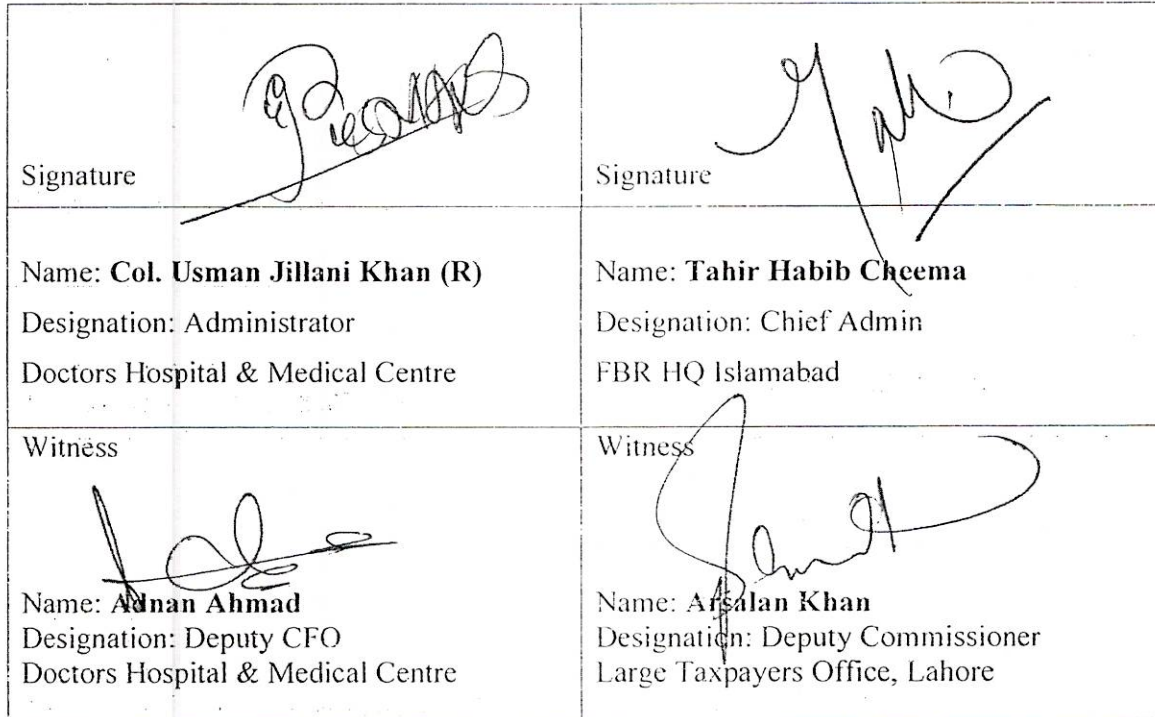 Signature
Name: Col. Usman Jillani Khan (R)
Designation: Administrator
Doctors Hospital & Medical Centre
Signature
Name: Tahir Habib Cheema
Designation: Chief Admin
FBR HQ Islamabad
Witness
Name: Adnan Ahmad
Designation: Deputy CFO
Doctors Hospital & Medical Centre
Witness
Name: Arsalan Khan
Designation: Deputy Commissioner
Large Taxpayers Office, Lahore